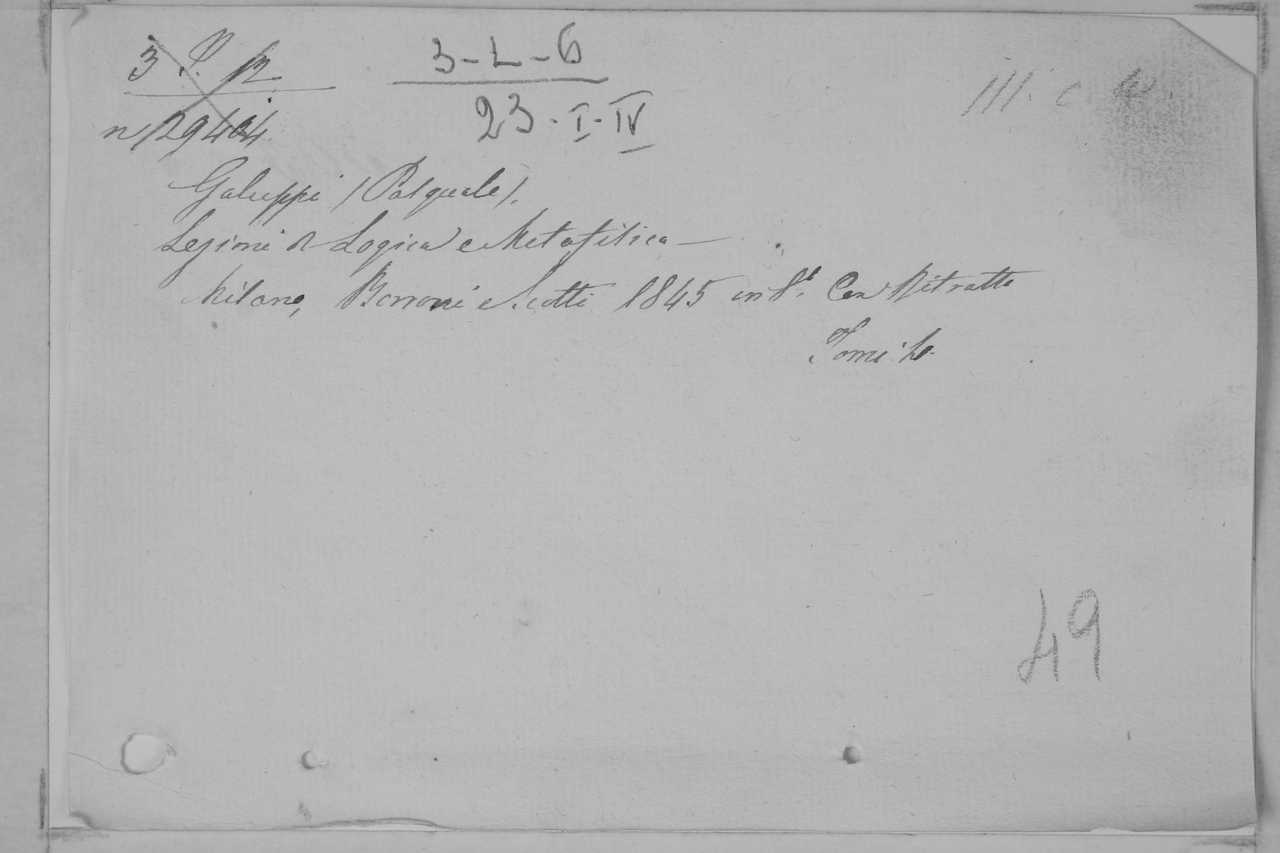 3 P. 12
3-L-6
23-I-IV
III. C
Galuppi (Pasquale).
Lezioni di Logica e Metafisica —
Milano, Borroni e Scotti 1845 in 8º. Con Ritratto
Tomi
49